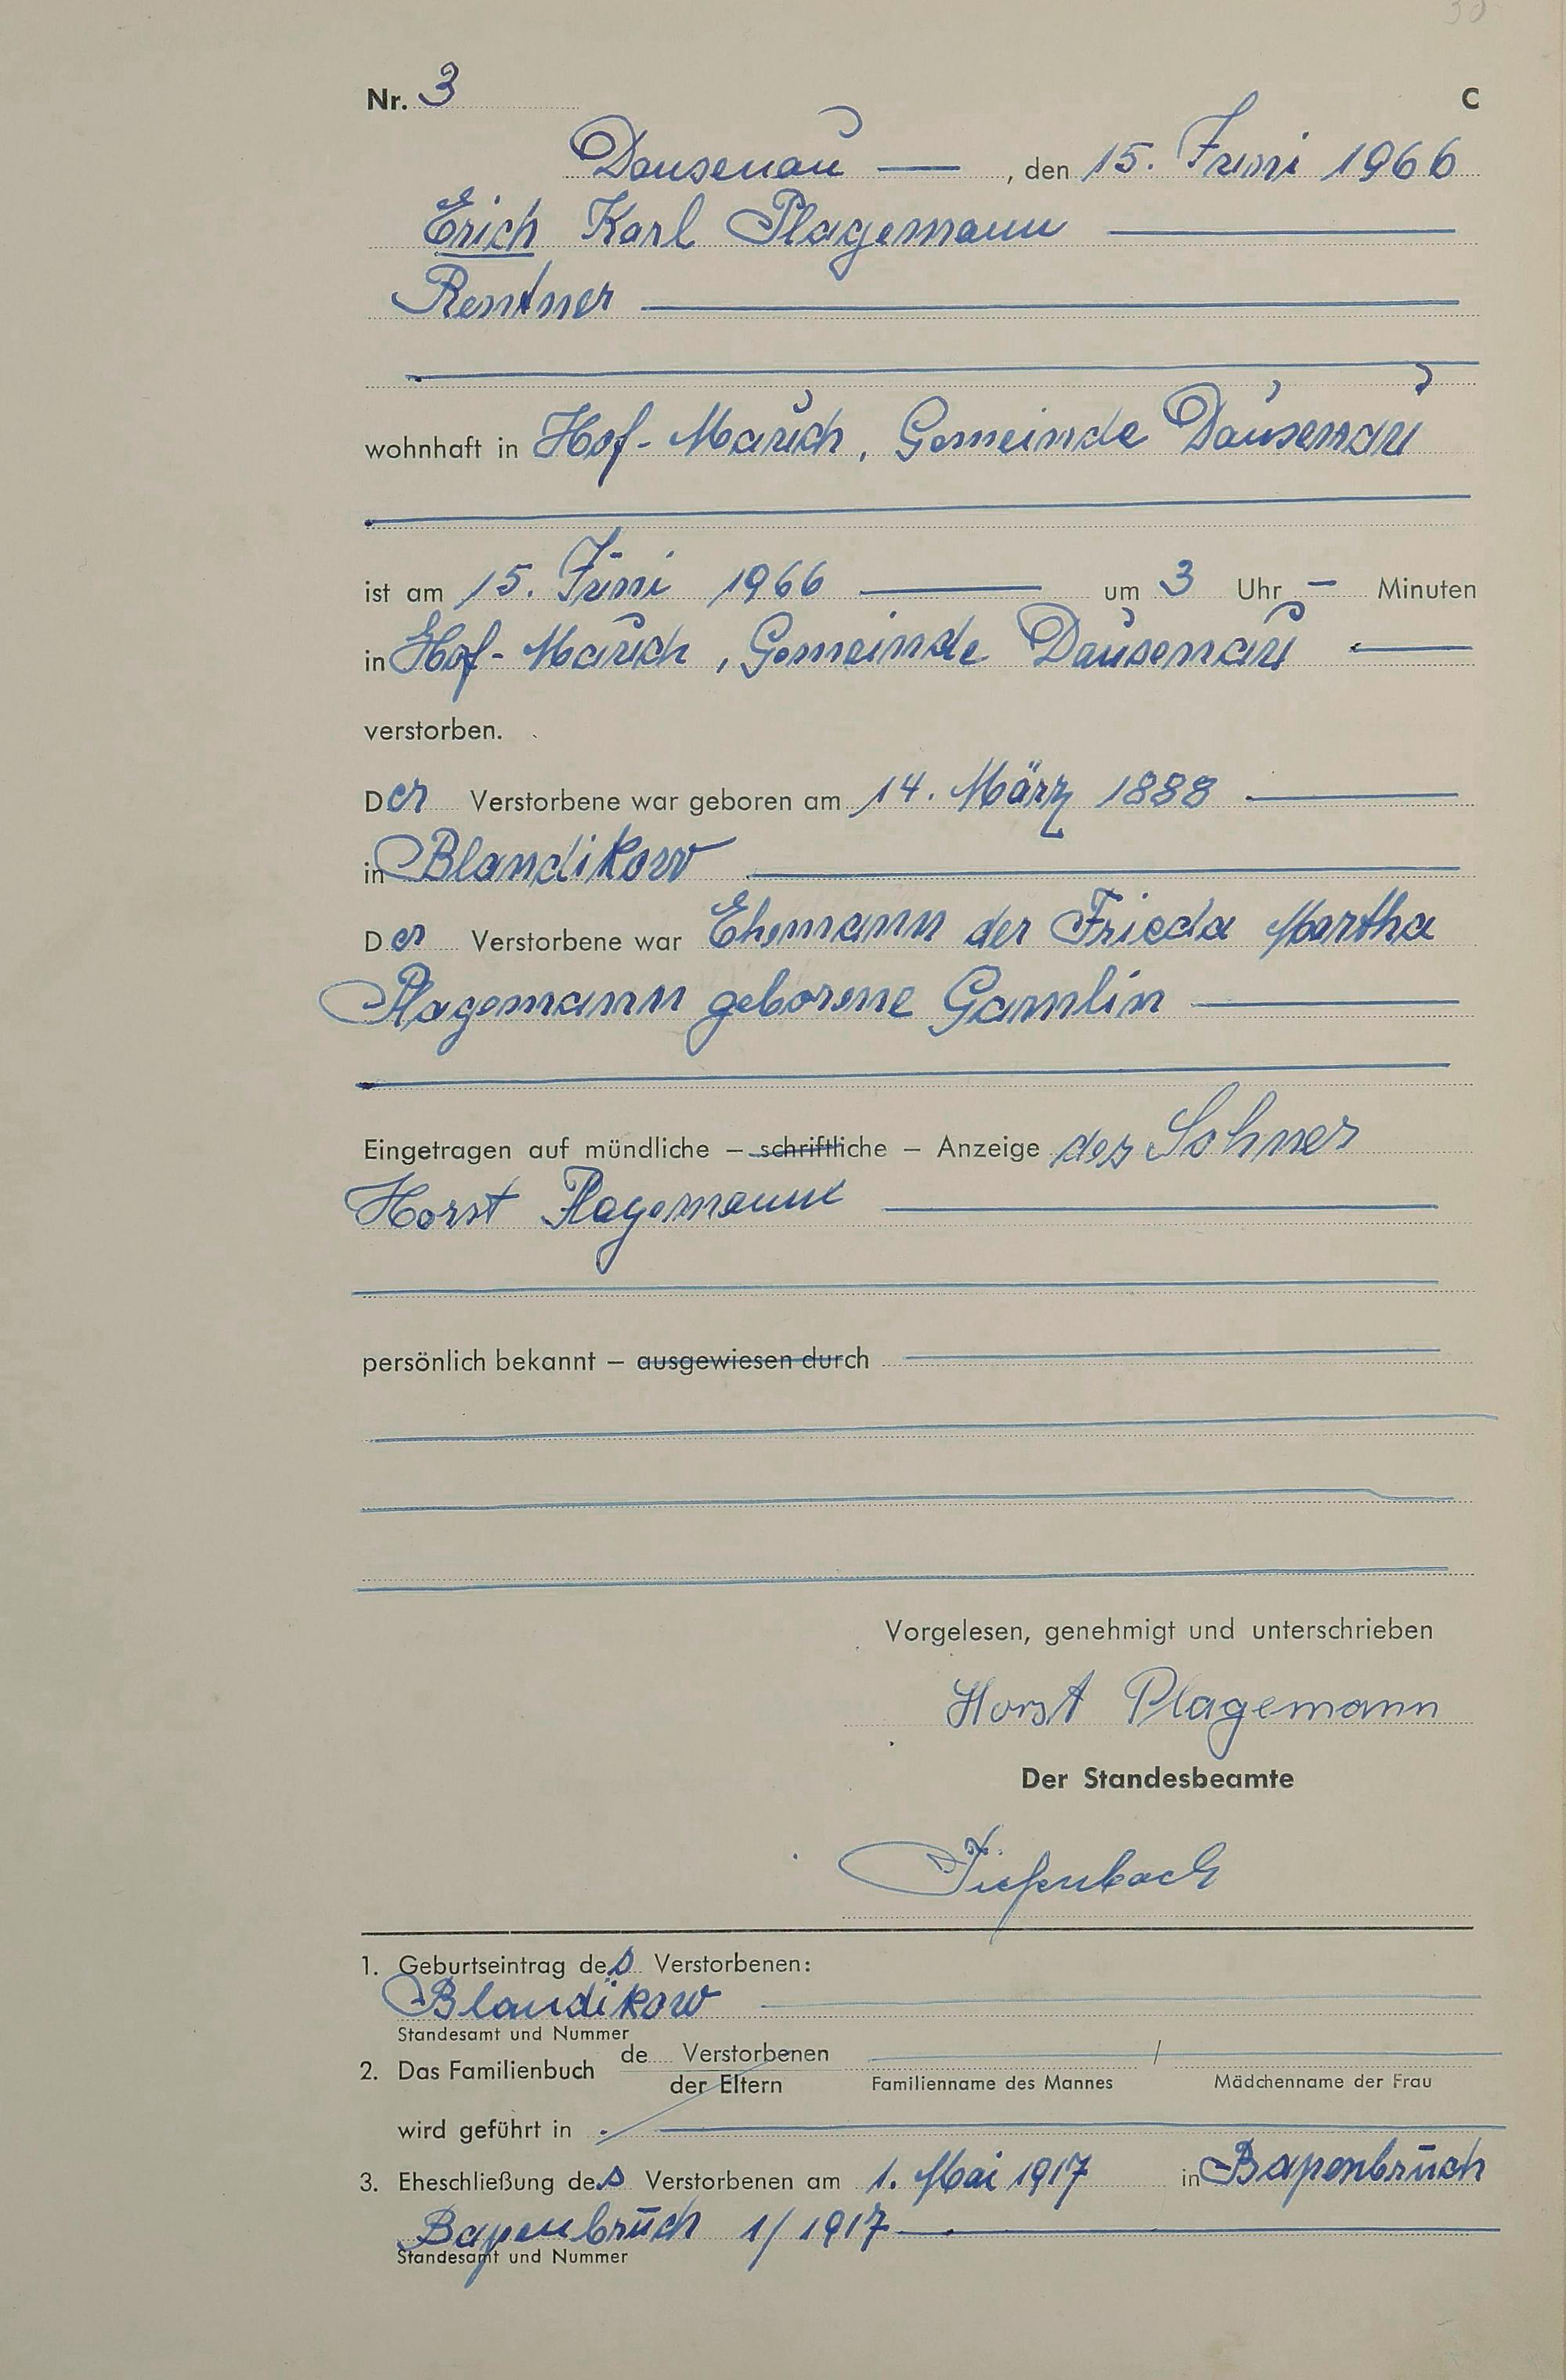 30
Nr. 3 C
Dausenau — , den 15. Juni 1966
Erich Karl Plagemann
Rentner
wohnhaft in Hof-Mauch, Gemeinde Dausenau
ist am 15. Juni 1966 um 3 Uhr – Minuten
in Hof-Mauch, Gemeinde Dausenau
verstorben.
Der Verstorbene war geboren am 14. März 1888
in Blandikow
Der Verstorbene war Ehemann der Frieda Martha
Plagemann geborene Gamlin
Eingetragen auf mündliche – schriftliche – Anzeige des Sohnes
Horst Plagemann
persönlich bekannt – ausgewiesen durch
Vorgelesen, genehmigt und unterschrieben
Horst Plagemann
Der Standesbeamte
Tiefenbach
1. Geburtseintrag des Verstorbenen:
Blandikow
Standesamt und Nummer
2. Das Familienbuch de Verstorbenen
der Eltern Familienname des Mannes / Mädchenname der Frau
wird geführt in
3. Eheschließung des Verstorbenen am 1. Mai 1917 in Bapenbruch
Bapenbruch 1/1917
Standesamt und Nummer